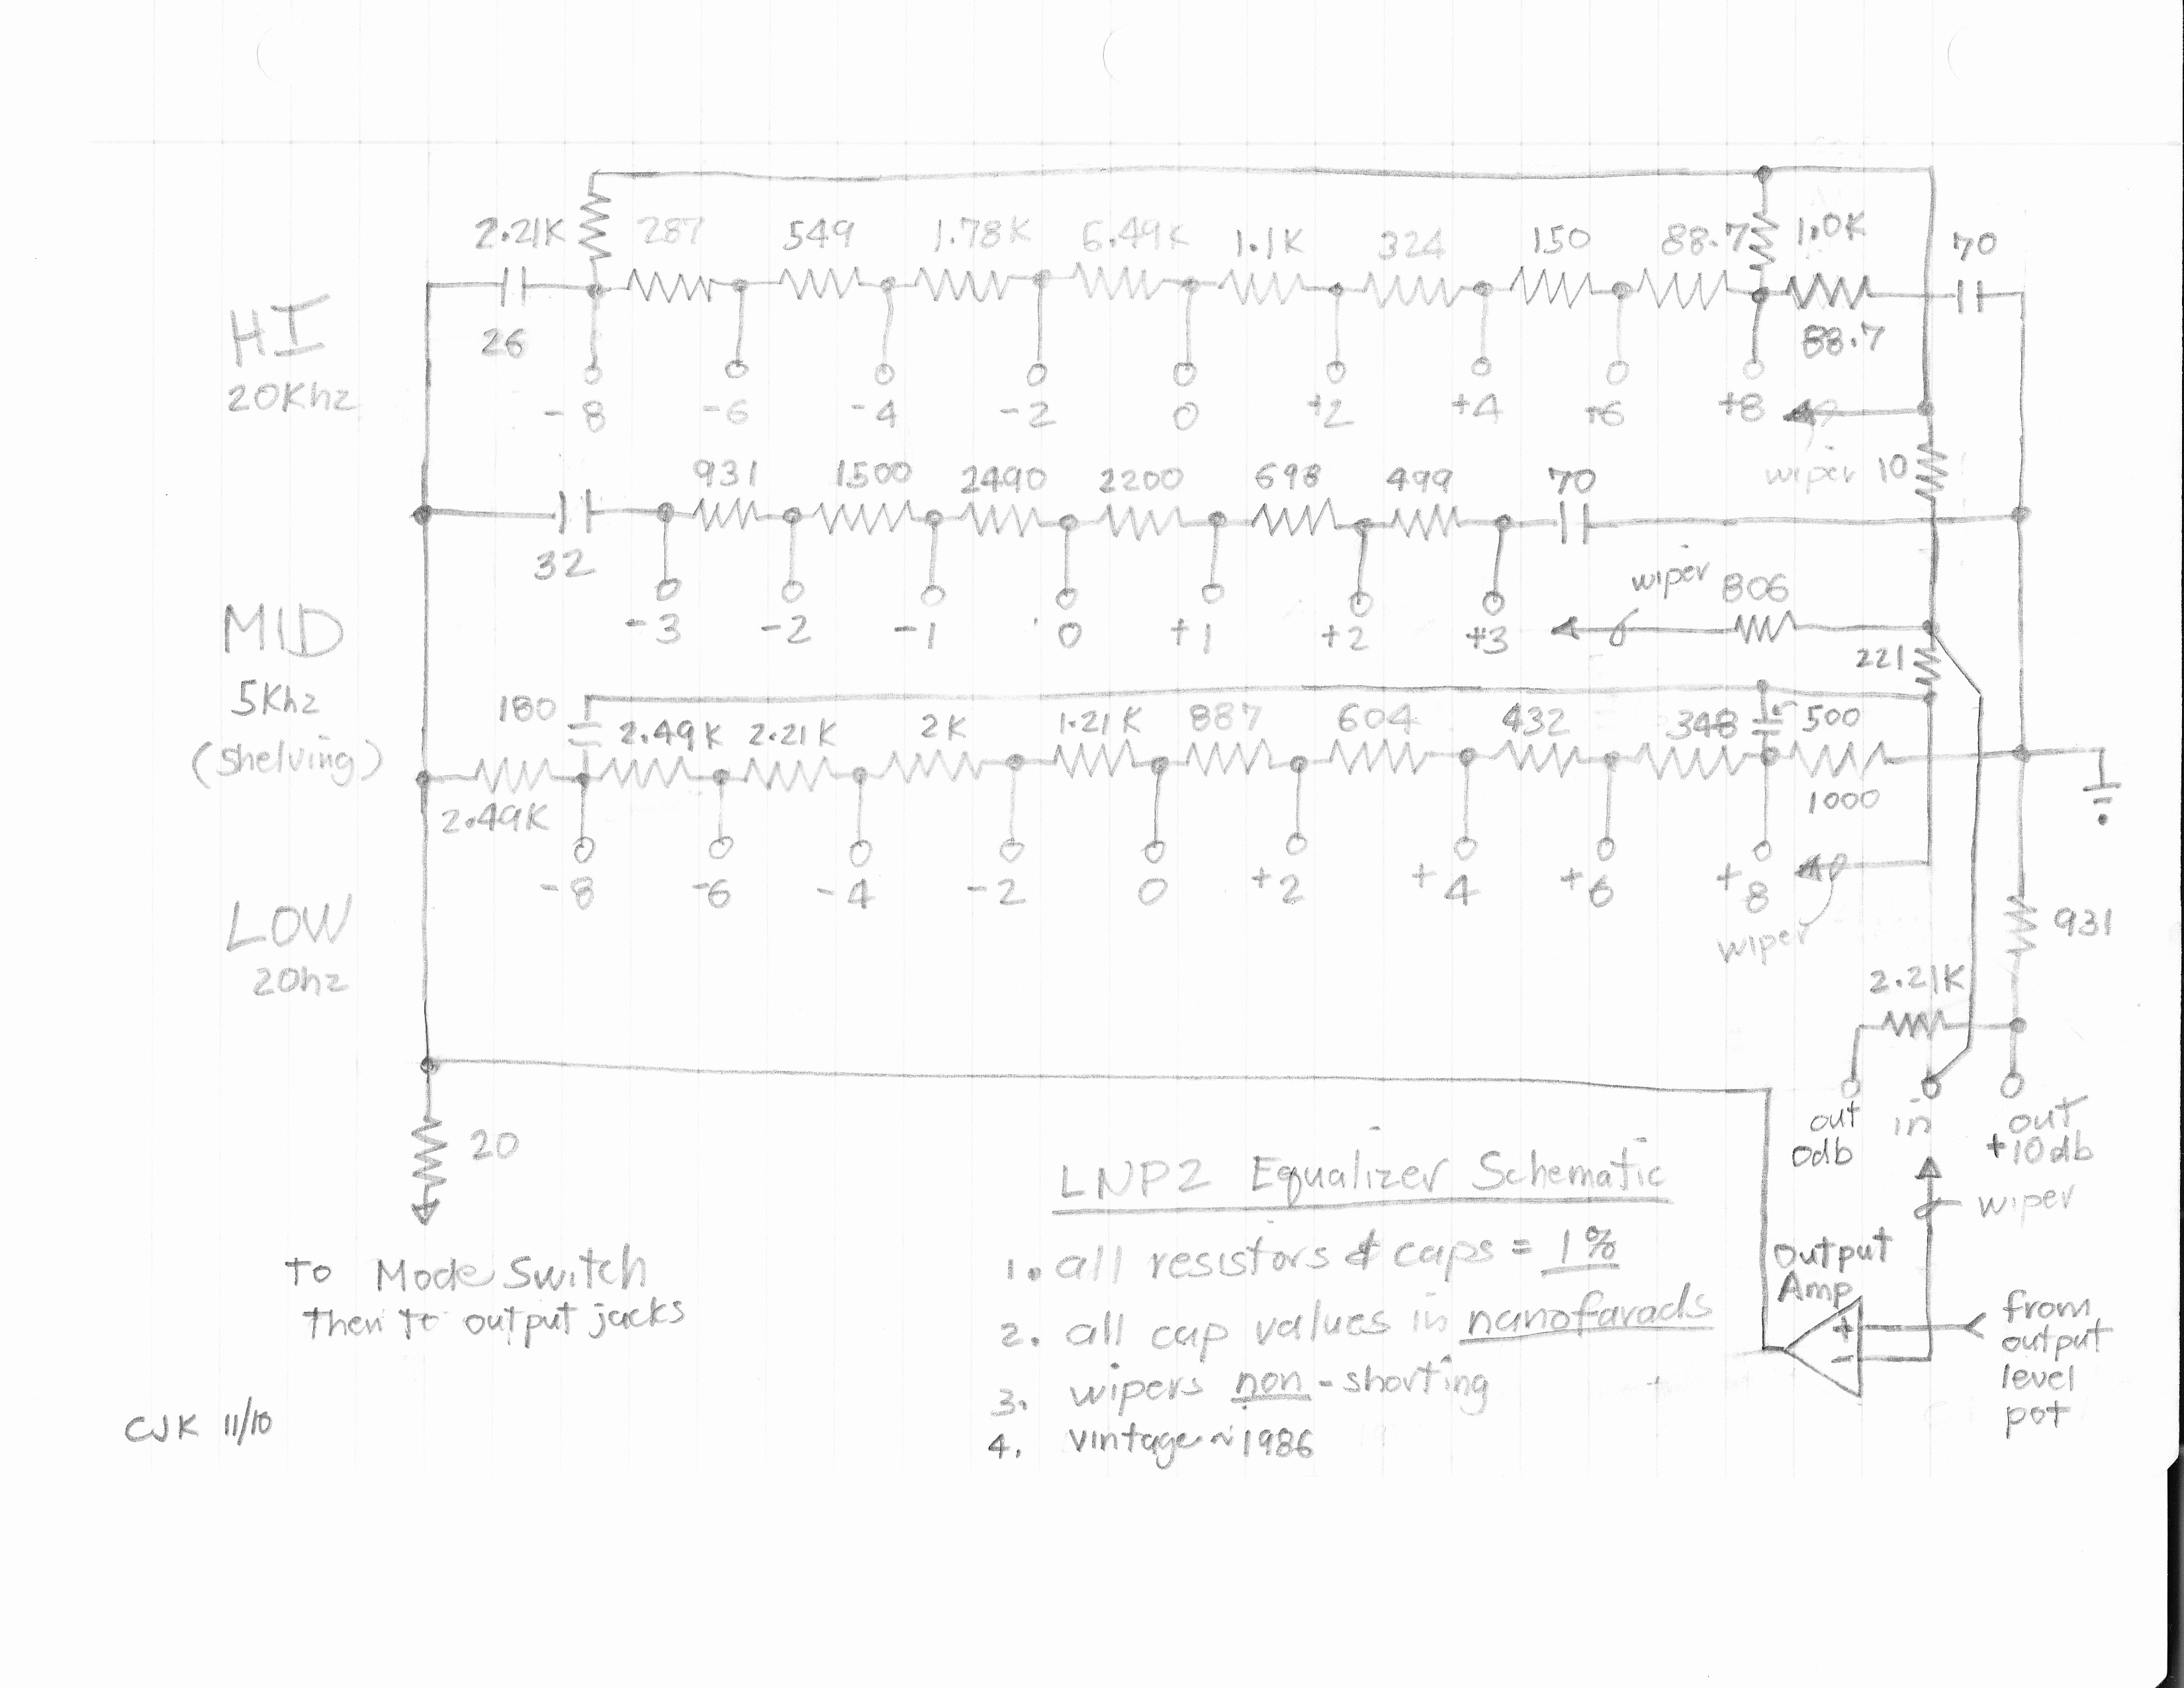 2.21K 287 549 1.78K 6.49K 1.1K 324 150 88.7 1.0K 70
HI
20Khz
26
88.7
-8 -6 -4 -2 0 +2 +4 +6 +8
wiper 10
931 1500 2490 2200 698 499 70
32
MID
5Khz
(shelving)
-3 -2 -1 0 +1 +2 +3
wiper 806
221
180 2.49K 2.21K 2K 1.21K 887 604 432 348 500
2.49K
1000
-8 -6 -4 -2 0 +2 +4 +6 +8
wiper
LOW
20hz
931
2.21K
out
0db
in
out
+10db
wiper
20
To Mode Switch
then to output jacks
LNP2 Equalizer Schematic
1. all resistors & caps = 1%
2. all cap values in nanofarads
3. wipers non-shorting
4. vintage ~ 1986
Output
Amp
+
-
from
output
level
pot
CJK 11/10